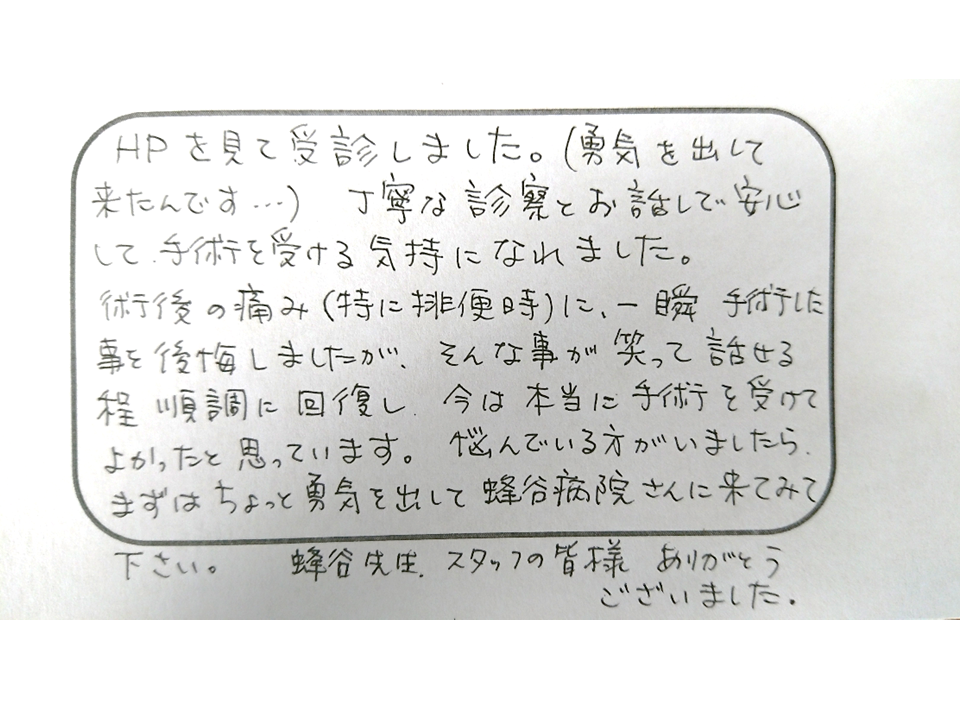 HPを見て受診しました。(勇気を出して
来たんです…) 丁寧な診察とお話しで安心
して、手術を受ける気持になれました。
術後の痛み(特に排便時)に、一瞬 手術した
事を後悔しましたが、そんな事が笑って話せる
程 順調に回復し、今は本当に手術を受けて
よかったと思っています。 悩んでいる方がいましたら、
まずはちょっと勇気を出して蜂谷病院さんに来てみて
下さい。 蜂谷先生、スタッフの皆様 ありがとう
ございました。